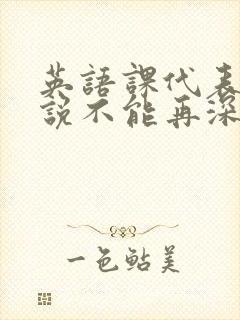 英語課代表
說不能再深
一色鮎美